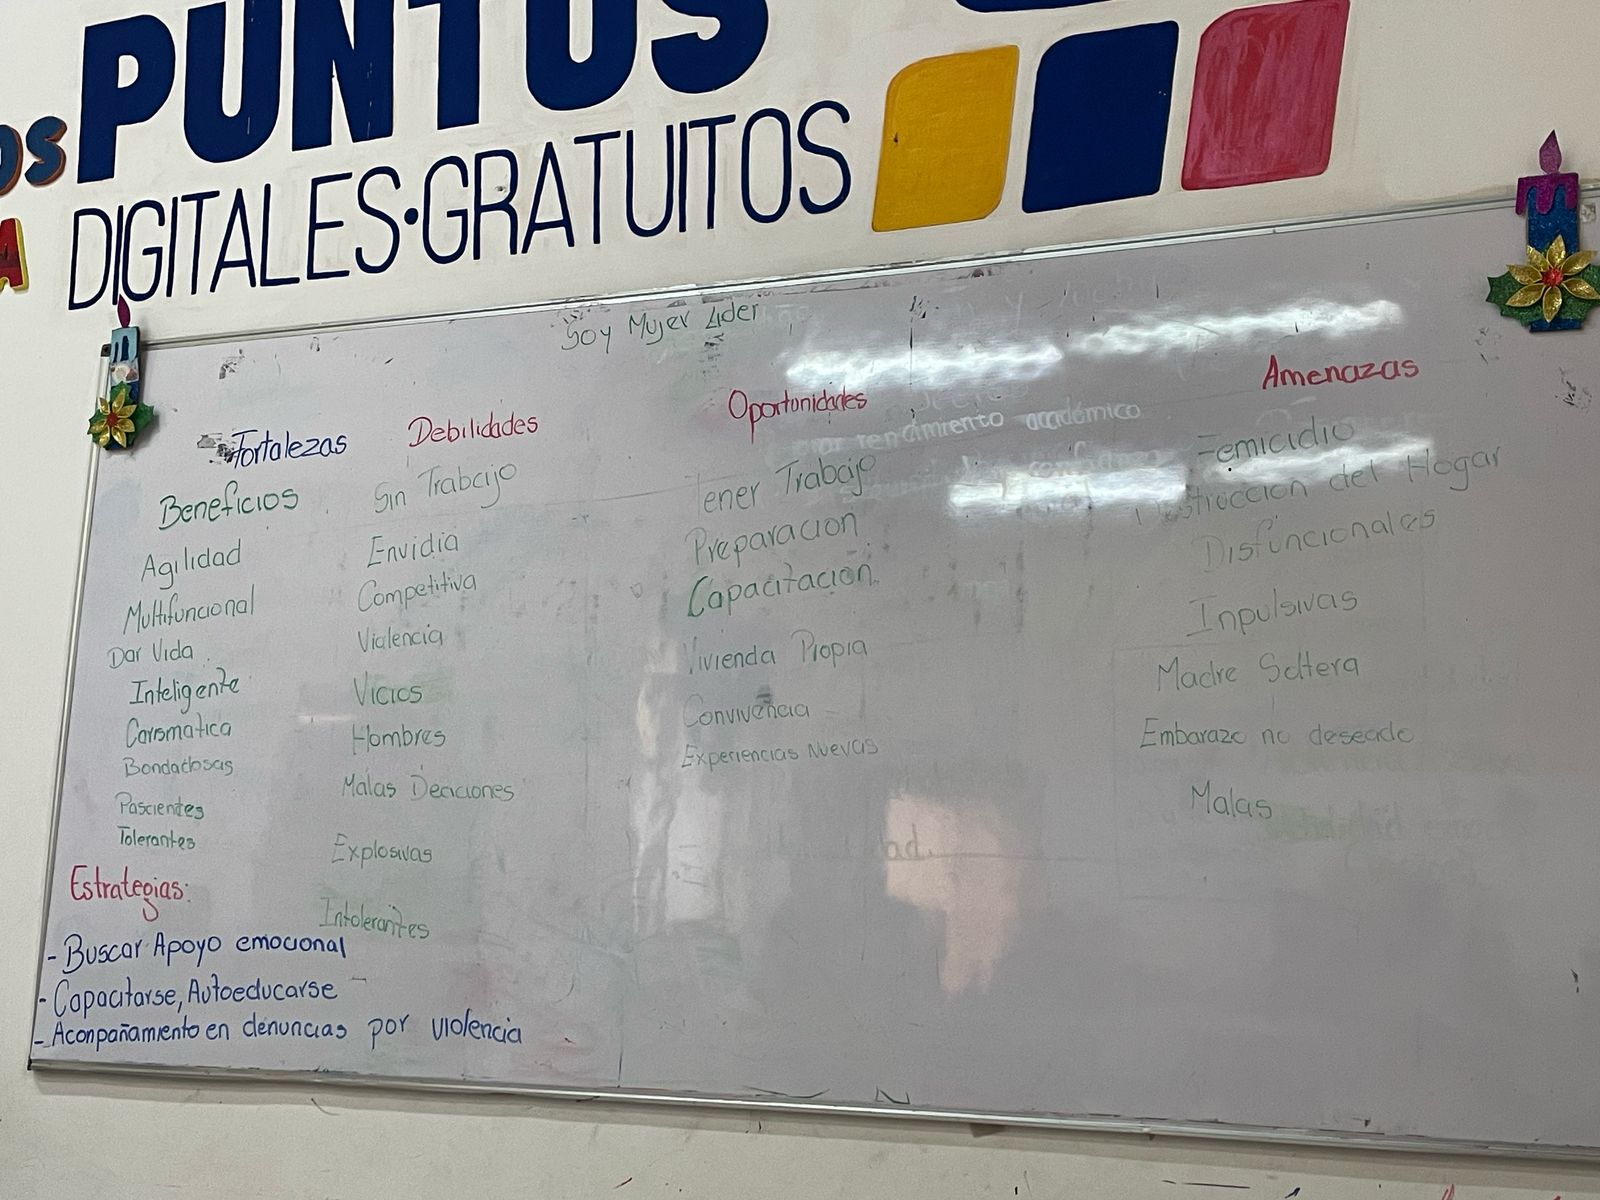 OS PUNTOS
A DIGITALES·GRATUITOS
Soy Mujer Lider
Fortalezas
Beneficios
Agilidad
Multifuncional
Dar Vida
Inteligente
Carismatica
Bondadosas
Pascientes
Tolerantes
Debilidades
Sin Trabajo
Envidia
Competitiva
Violencia
Vicios
Hombres
Malas Deciciones
Explosivas
Intolerantes
Oportunidades
rendimiento académico
Tener Trabajo
Preparacion
Capacitacion
Vivienda Propia
Convivencia
Experiencias Nuevas
Amenazas
Femicidio
del Hogar
Disfuncionales
Inpulsivas
Madre Soltera
Embarazo no deseado
Malas
Estrategias:
- Buscar Apoyo emocional
- Capacitarse, Autoeducarse
- Aconpañamiento en denuncias por violencia